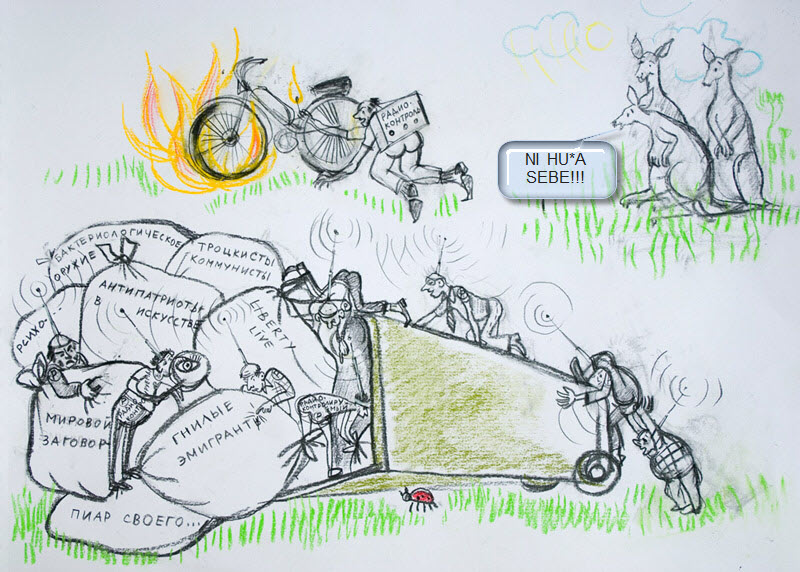 РАДИО-
КОНТРОЛЬ
NI HU*A
SEBE!!!
БАКТЕРИОЛОГИЧЕСКОЕ
ОРУЖИЕ
ТРОЦКИСТЫ
КОММУНИСТЫ
ПСИХО-
АНТИПАТРИОТЫ
В
ИСКУССТВЕ
LIBERTY
LIVE
МИРОВОЙ
ЗАГОВОР
ГНИЛЫЕ
ЭМИГРАНТЫ
РАДИО-
КОНТРОЛИРУ
ЕМЫЙ
ПИАР СВОЕГО...